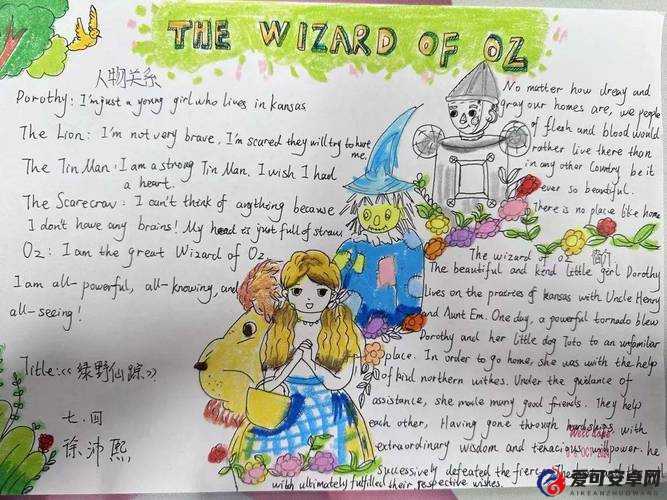 THE WIZARD OF OZ
人物关系
Dorothy: I'm just a young girl who lives in kansas.
The Lion: I'm not very brave, I'm scared they will try to hurt
me.
The Tin Man: I am a strong Tin Man. I wish I had
a heart.
The Scarecrow: I can't think of anything because
I don't have any brains! My head is just full of straw.
Oz: I am the great Wizard of Oz
I am all-powerful, all-knowing, and
all-seeing!
Title:《绿野仙踪》
七.
徐沛熙
No matter how dreay and
gray our homes are, we people
of flesh and blood would
rather live there than
in any other Country, be it
ever so beautiful.
There is no place like home
The wizard of oz 简介
The beautiful and kind little girl Dorothy
lives on the prairies of kansas with Uncle Henry
and Aunt Em. One day, a powerful tornado blew
Dorothy and her little dog Toto to an unfamiliar
place. In order to go home, she was with the help
of kind northern withes. Under the guidance of
assistance, she made many good friends. They help
each other, Having gone through hardships with
extraordinary wisdom and tenacious willpower. he
successively defeated the
with ultimately fulfilled their respective wishes.
Well done
爱可安卓网
AIKEANZHUOWANG